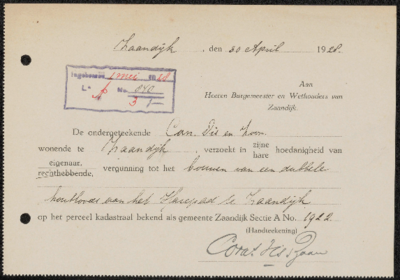 Zaandijk, den 30 April 1928.
Ingekomen 1 mei 1928
L A No. 840
3 1
Aan
Heeren Burgemeester en Wethouders van
Zaandijk.
De ondergeteekende Corn. Vis en Zoon
wonende te Zaandijk, verzoekt in zijne hoedanigheid van
hare
eigenaar.
rechthebbende, vergunning tot het bouwen van een dubbele
houtloods aan het Hazepad te Zaandijk
op het perceel kadastraal bekend als gemeente Zaandijk Sectie A No. 1922
(Handteekening)
Corn. Vis & Zoon